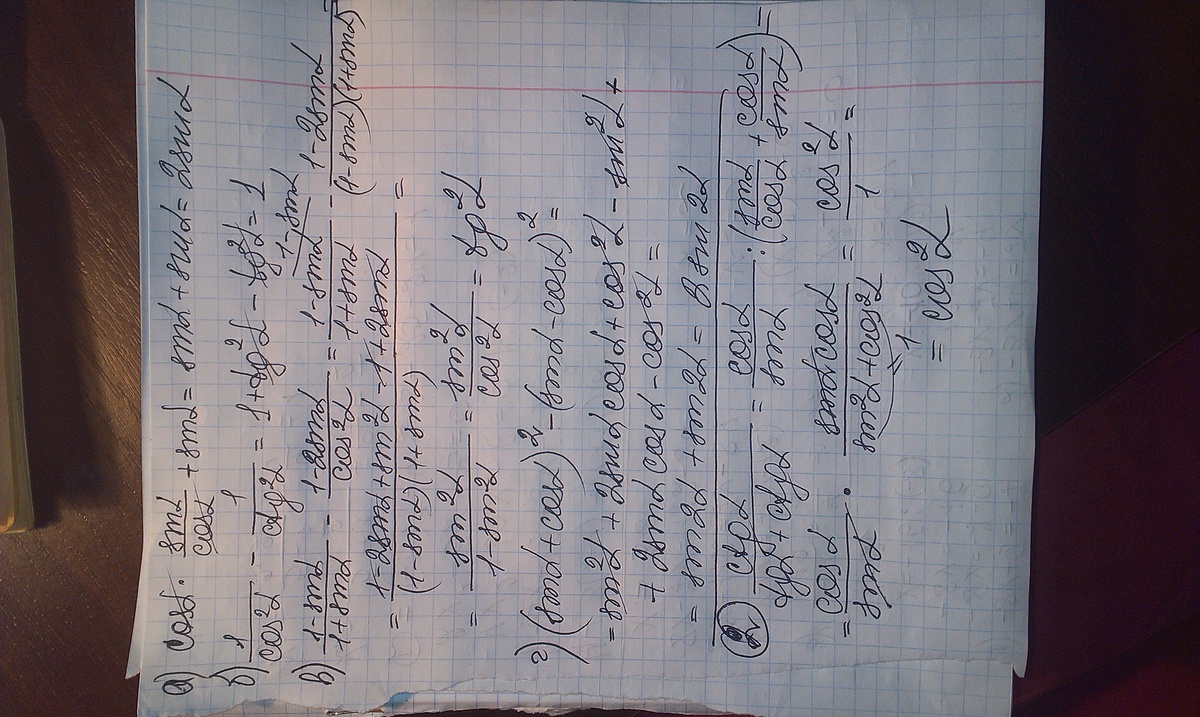 а) cosα · sinα/cosα + sinα = sinα + sinα = 2sinα
б) 1/cos²α − 1/ctg²α = 1 + tg²α − tg²α = 1
в) (1−sinα)/(1+sinα) − (1−2sinα)/cos²α = (1−sinα)/(1+sinα) ^(1−sinα) − (1−2sinα)/((1−sinα)(1+sinα)) =
= (1−2sinα+sin²α−1+2sinα)/((1−sinα)(1+sinα)) =
= sin²α/(1−sin²α) = sin²α/cos²α = tg²α
г) (sinα+cosα)² − (sinα−cosα)² =
= sin²α + 2sinαcosα + cos²α − sin²α +
+ 2sinαcosα − cos²α =
= sin2α + sin2α = 2sin2α
ctgα/(tgα+ctgα) = cosα/sinα : (sinα/cosα + cosα/sinα) =
= cosα/sinα · sinαcosα/(sin²α+cos²α) = cos²α/1 =
1
= cos²α